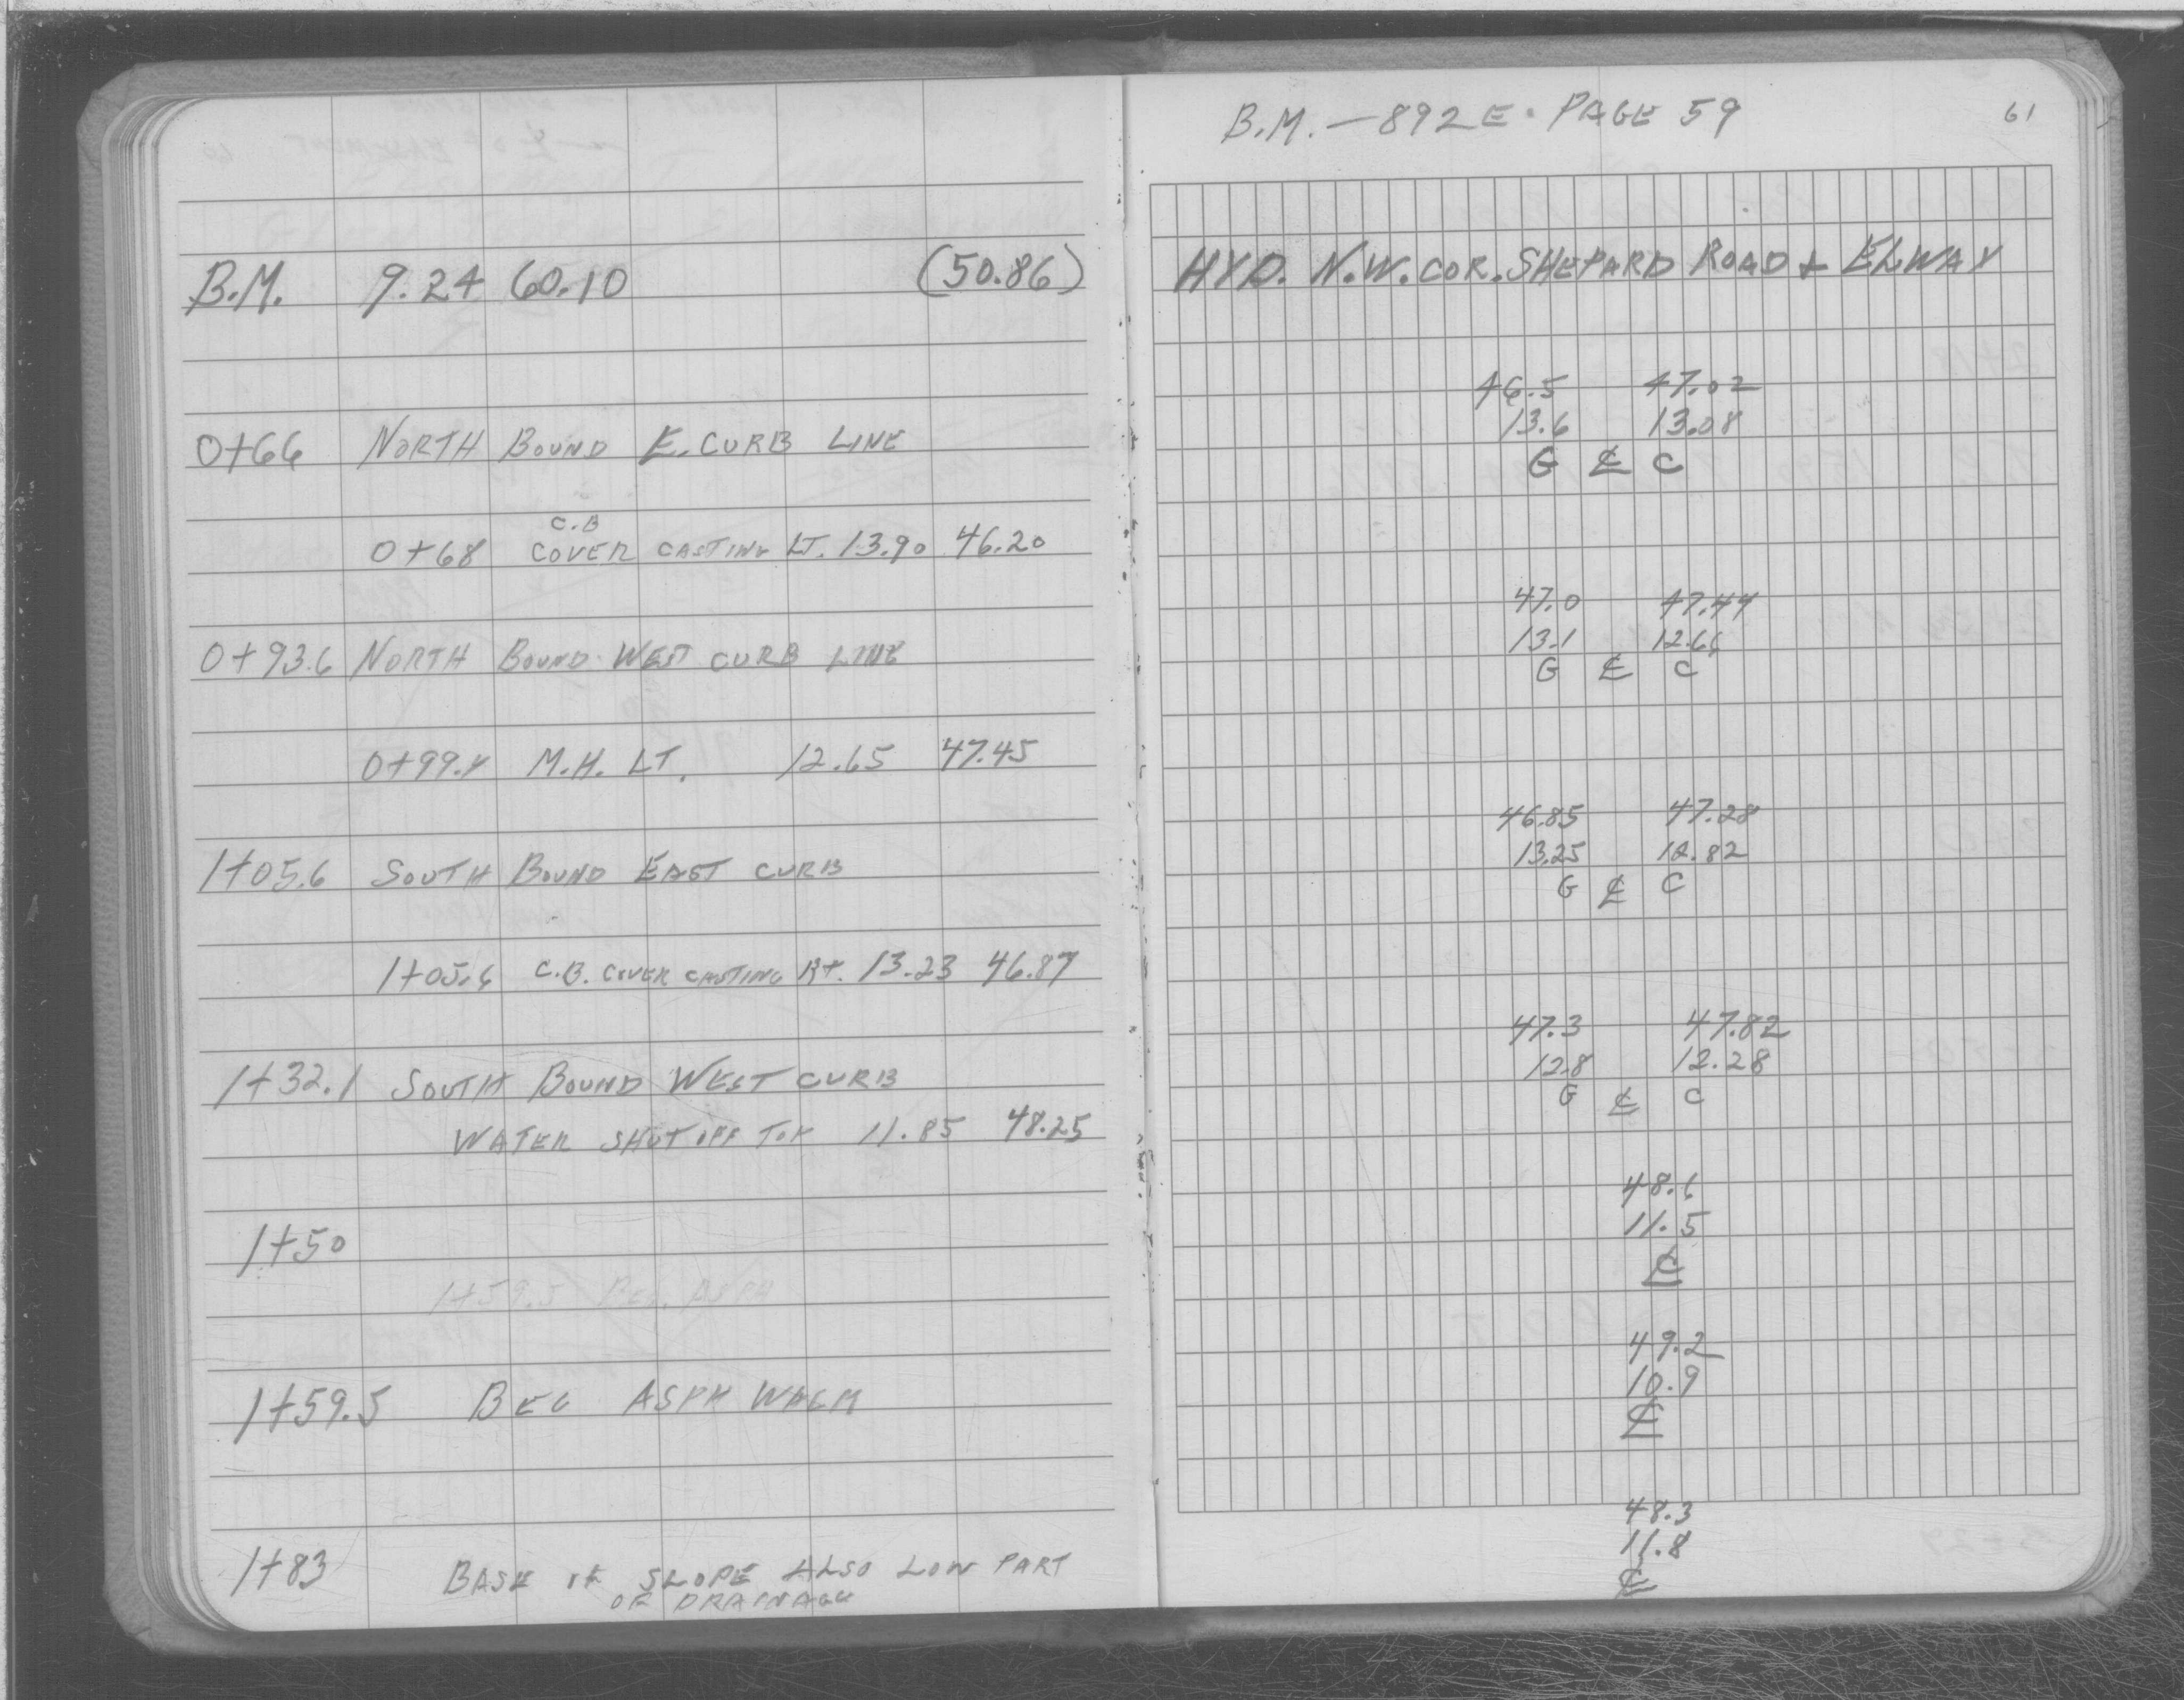 B.M. — 892 E. PAGE 59
61
B.M. 9.24 60.10 (50.86) HYD. N.W. COR. SHEPARD ROAD + ELWAY
46.5 47.02
13.6 13.08
0+66 NORTH BOUND E. CURB LINE G ℄ C
C.B
0+68 COVER CASTING LT. 13.90 46.20
47.0 47.44
13.1 12.66
0+93.6 NORTH BOUND WEST CURB LINE G ℄ C
0+99.4 M.H. LT. 12.65 47.45
46.85 47.28
13.25 12.82
1+05.6 SOUTH BOUND EAST CURB G ℄ C
1+05.6 C.B. COVER CASTING RT. 13.23 46.87
47.3 47.82
12.8 12.28
1+32.1 SOUTH BOUND WEST CURB G ℄ C
WATER SHUT OFF TOP 11.85 48.25
48.6
11.5
1+50 ℄
1+59.5 BEG. ASPH
49.2
10.9
1+59.5 BEG ASPH WALK ℄
48.3
11.8
1+83 BASE OF SLOPE ALSO LOW PART ℄
OF DRAINAGE